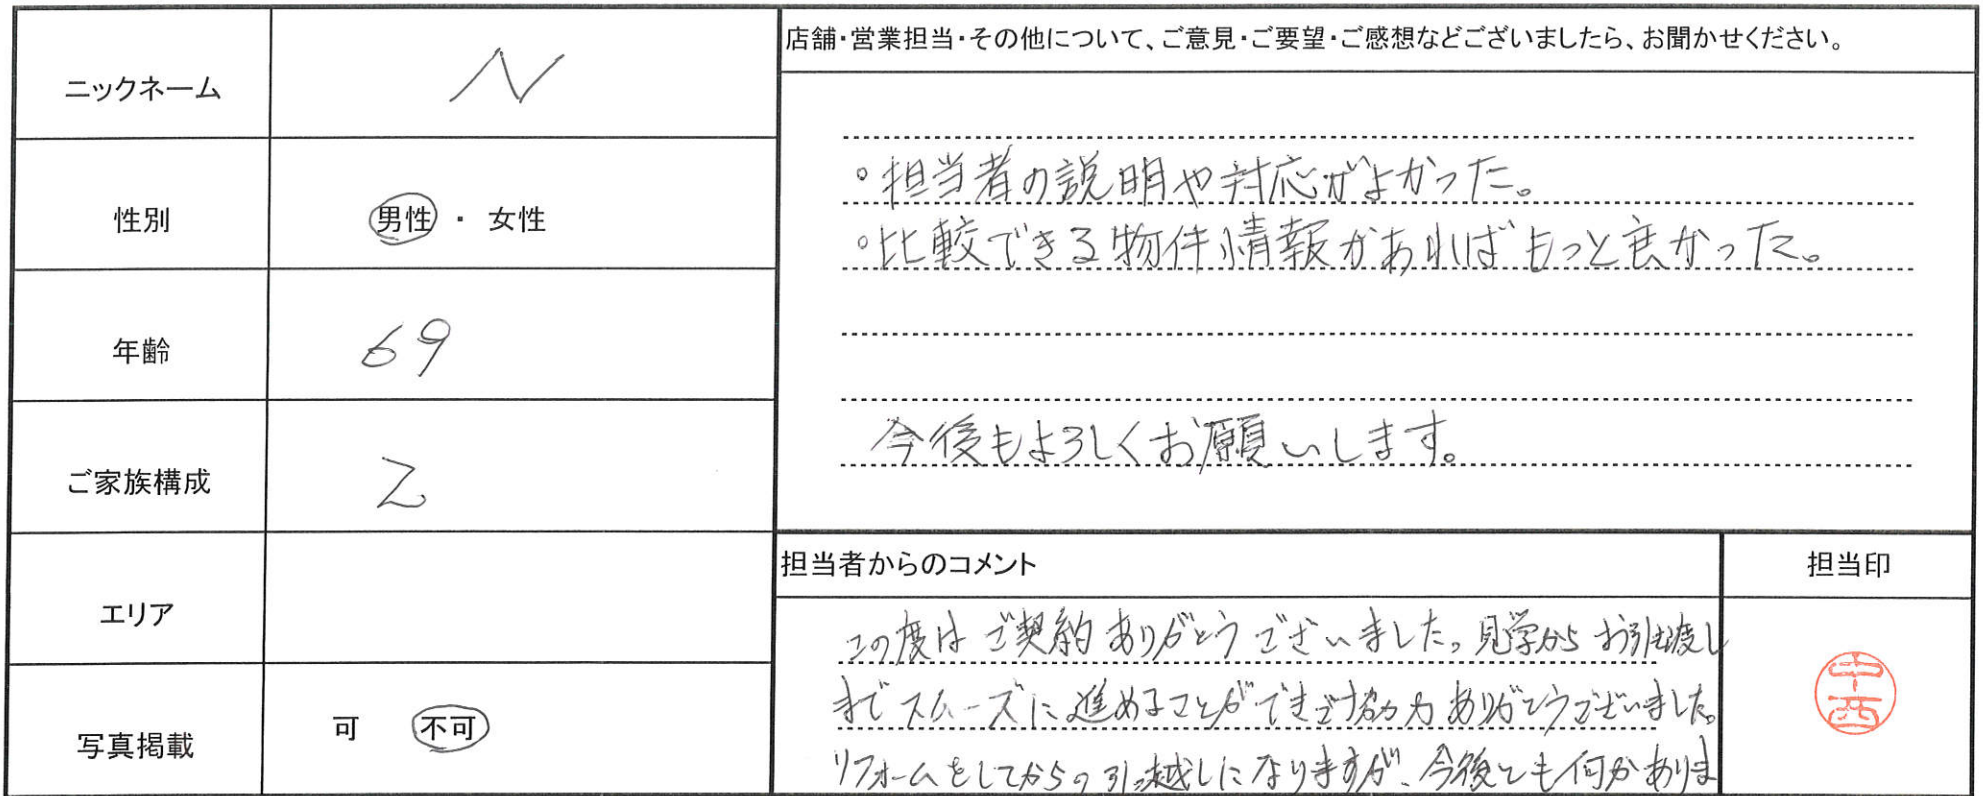 ニックネーム N
性別 男性 ・ 女性
年齢 69
ご家族構成 2
エリア
写真掲載 可 不可
店舗・営業担当・その他について、ご意見・ご要望・ご感想などございましたら、お聞かせください。
。担当者の説明や対応がよかった。
。比較できる物件情報があればもっと良かった。
今後もよろしくお願いします。
担当者からのコメント
この度は ご契約ありがとうございました。見学からお引き渡し
までスムーズに進めることができご協力ありがとうございました。
リフォームをしてからの引っ越しになりますが、今後とも何かありま
担当印
中西